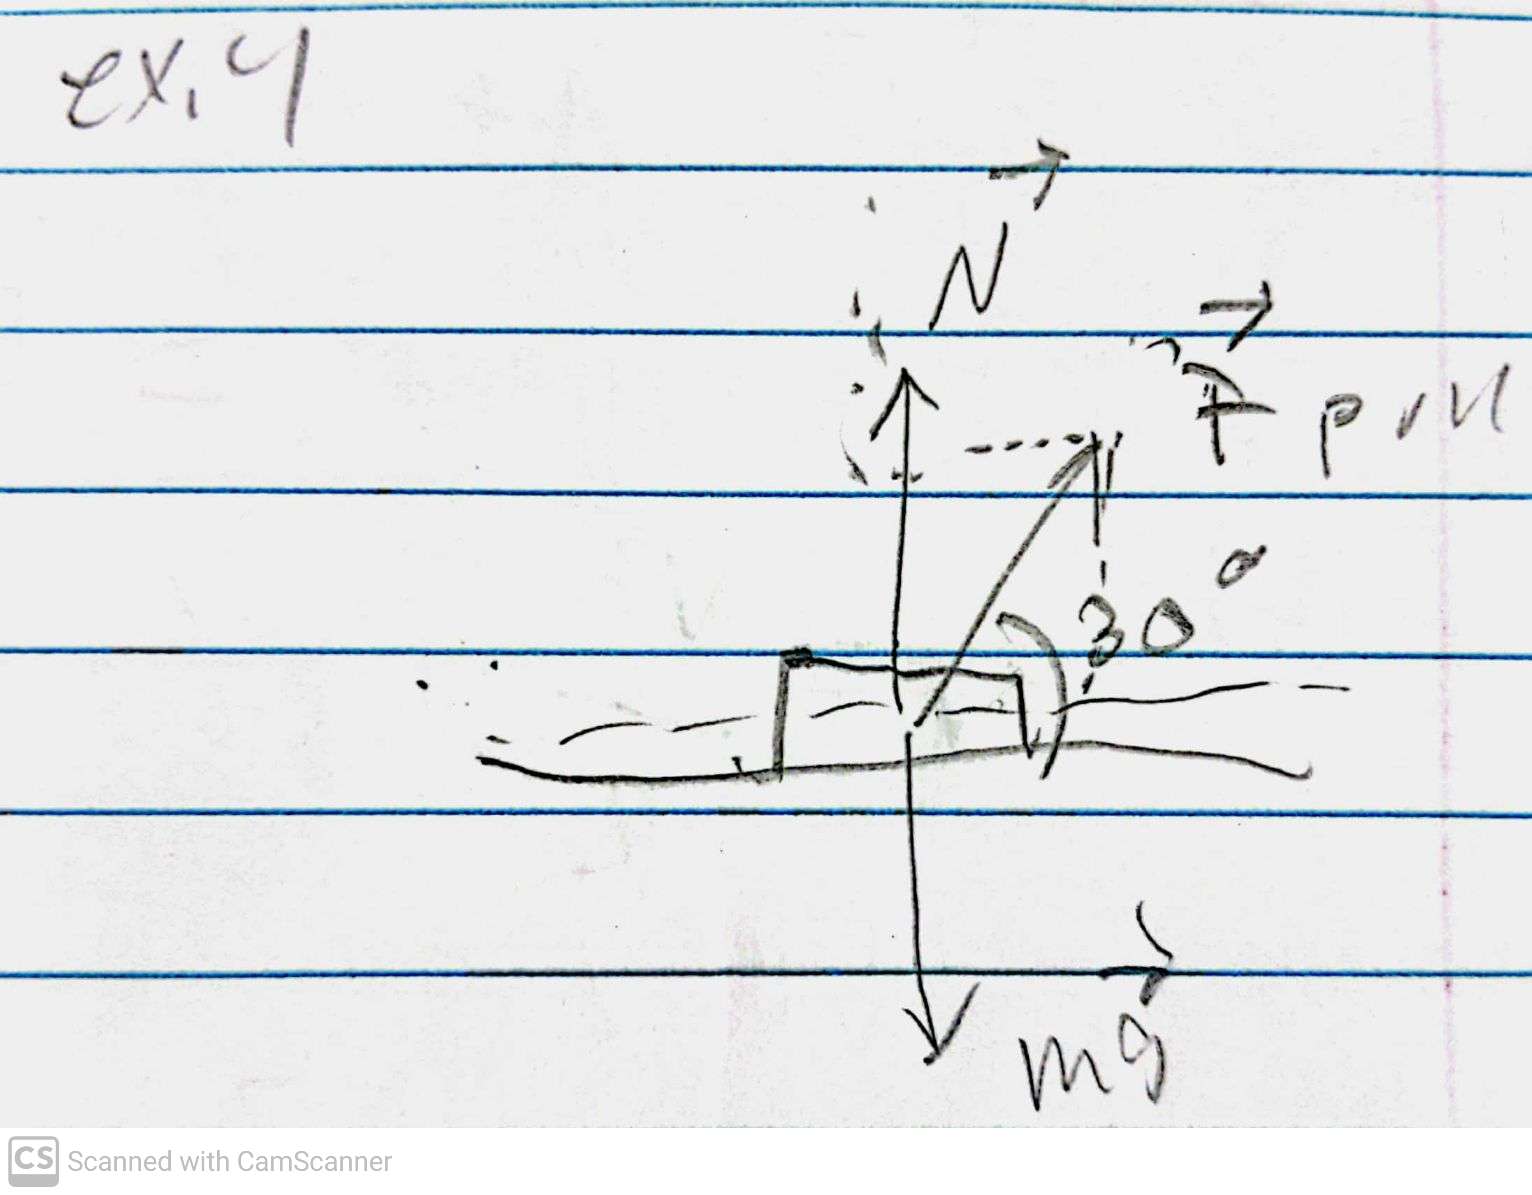 ex. 4
N
F pull
30°
mg
CS Scanned with CamScanner